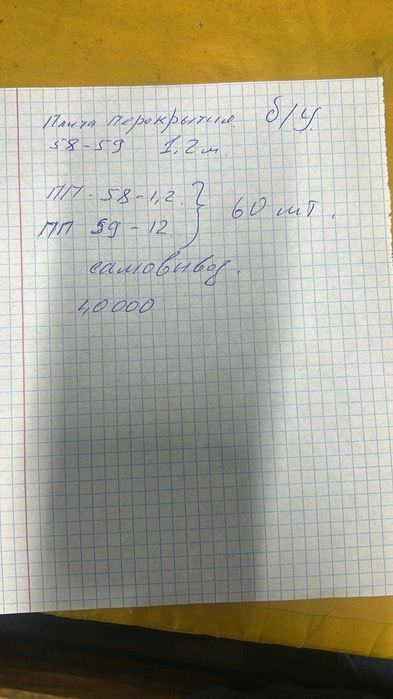 Плита перекрытия. б/у.
58-59 1,2 м.
ПП - 58-1,2. } 60 шт.
ПП 59 - 12.
самовывоз.
40000